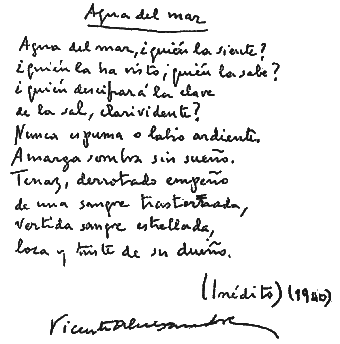 Agua del mar
Agua del mar, ¿quién la siente?
¿quién la ha visto, quién la sabe?
¿quién descifrará la clave
de la sal, clarividente?
Nunca espuma o labio ardiente.
Amarga sombra sin sueño.
Tenaz, derrotado empeño
de una sangre trastornada,
vertida sangre estrellada,
loca y triste de su dueño.
(Inédito) (1940)
Vicente Aleixandre